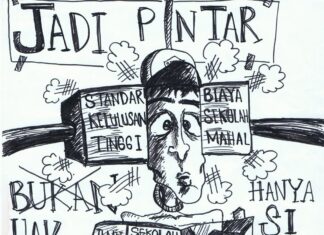 JADI PINTAR
STANDAR
KELULUSAN
TINGGI
BIAYA
SEKOLAH
MAHAL
BUKAN
HAK
HANYA
SI
SEKOLAH